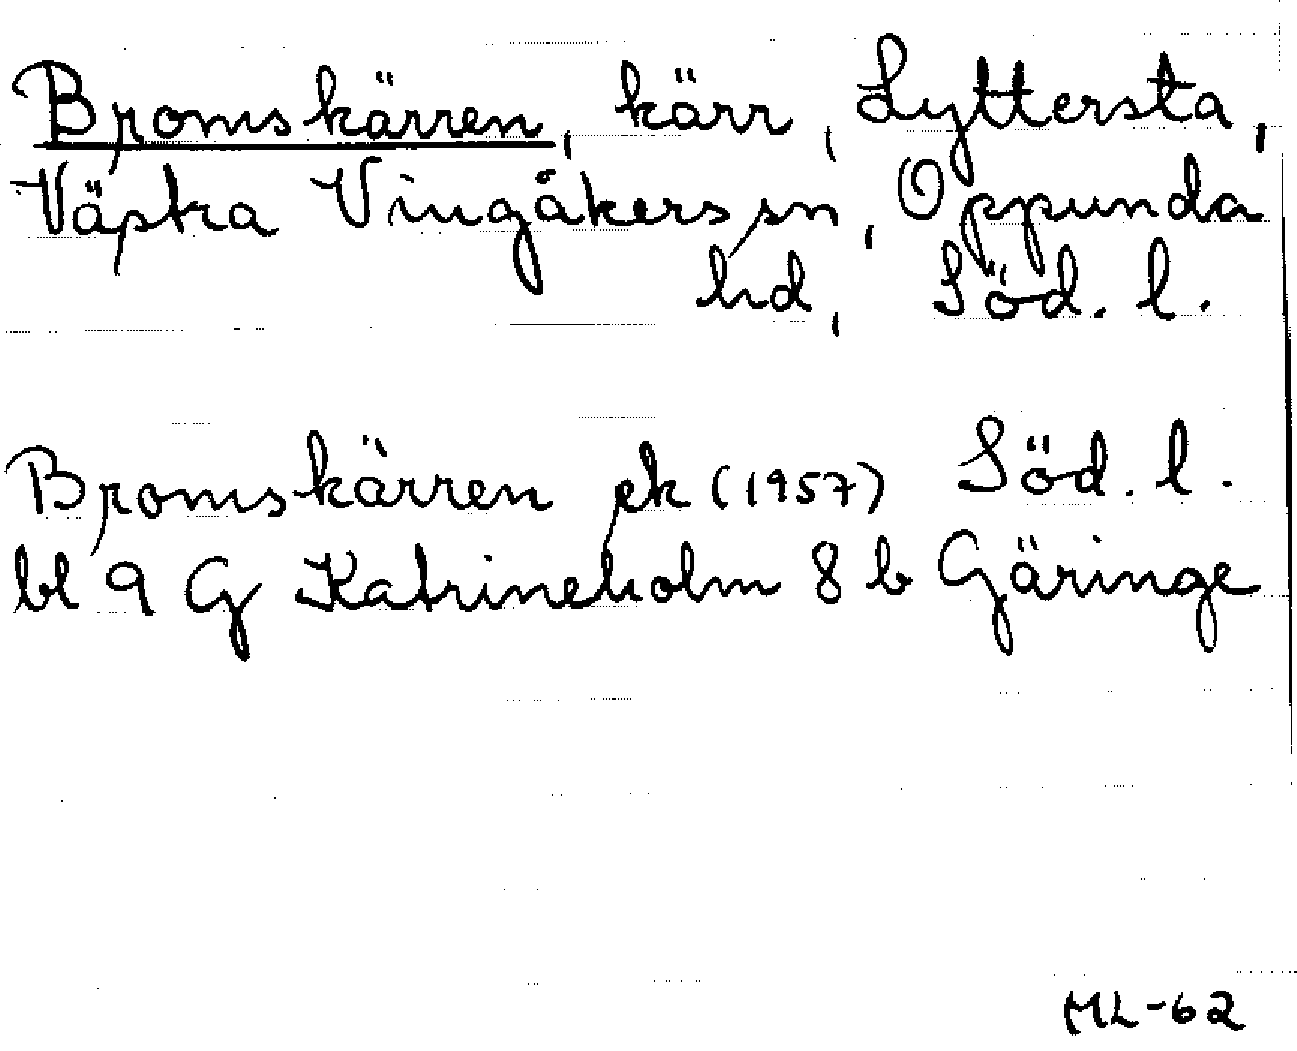 Bromskärren, kärr, Lyttersta,
Västra Vingåkers sn, Oppunda
hd, Söd. l.
Bromskärren ek (1957) Söd. l.
bl 9 G Katrineholm 8 b Gäringe
ML-62